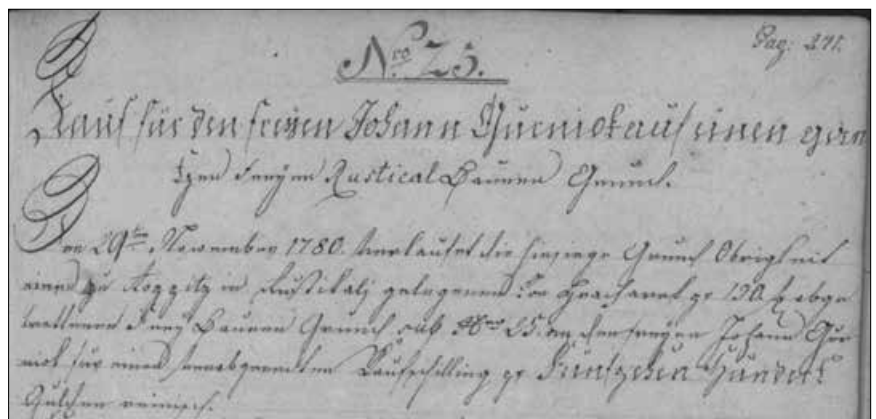 Pag: 271.
Nro 25.
Kauf für den freÿen Johann Gurniok auf einen gan
tzen Freÿen Rustical Bauern Grund.
Den 29ten November 1780. verkaufet die hiesige Grund Obrigkeit
einen zu Koppitz in gelegenen pr 130. abge
trettenen Freÿ Bauern Grund sub Nro 25. an den freÿen Johann Gur
niok für einen verabgeredten Kaufschilling pr Fünfzehen Hundert
Gulden reinisch.